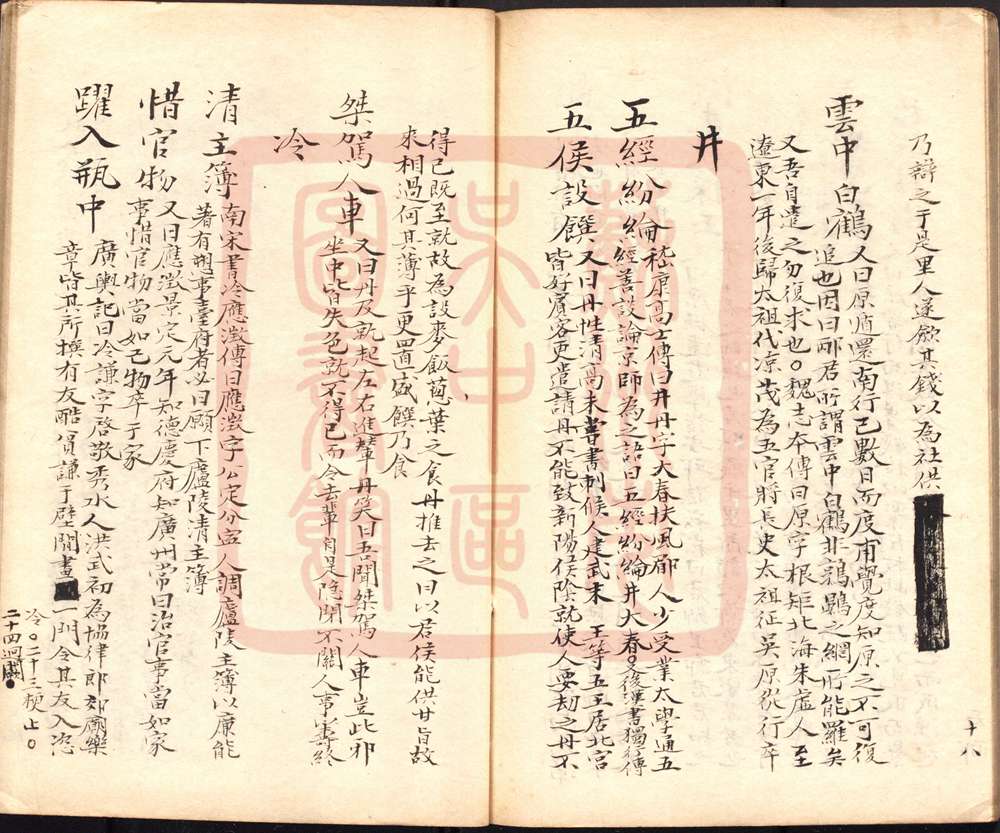 乃辯之于是里人遂斂其錢以為社供
雲中白鶴又曰原遁還南行已數日而度甫覺度知原之不可復
追也因曰邴君所謂雲中白鶴非鶉鷃之網所能羅矣
又吾自遣之勿復求也○魏志本傳曰原字根矩北海朱虛人至
遼東一年後歸太祖代涼茂為五官將長史太祖征吳原從行卒
井
五經紛綸嵇康高士傳曰井丹字大春扶風郿人少受業太學通五
經善談論京師為之語曰五經紛綸井大春○後漢書獨行傳
五侯設饌又曰丹性清高未嘗書刺候人建武末 王等五王居北宮
皆好賓客更遣請丹不能致新陽侯陰就使人要劫之丹不
得已既至就故為設麥飯蔥葉之食丹推去之曰以君侯能供甘旨故
來相過何其薄乎更置盛饌乃食
桀駕人車又曰丹及就起左右進輦丹笑曰吾聞桀駕人車豈此邪
坐中皆失色就不得已而令去輦自是隱閉不關人事壽終
冷
清主簿南宋書冷應澂傳曰應澂字公定分寧人調廬陵主簿以廉能
著有愬事臺府者必曰願下廬陵清主簿
惜官物又曰應澂景定元年知德慶府知廣州常曰治官事當如家
事惜官物當如己物卒于家
躍入瓶中廣輿記曰冷謙字啓敬秀水人洪武初為協律郎郊廟樂
章皆其所撰有友酷貧謙于壁間畫一門令其友入恣
冷○二十三梗上○
二十四迥
十八